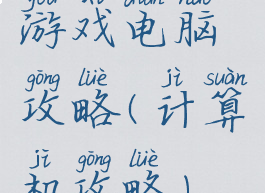 yóu xì diàn nǎo
游戏电脑
gōng lüè jì suàn
攻略(计算
jī gōng lüè
机攻略)